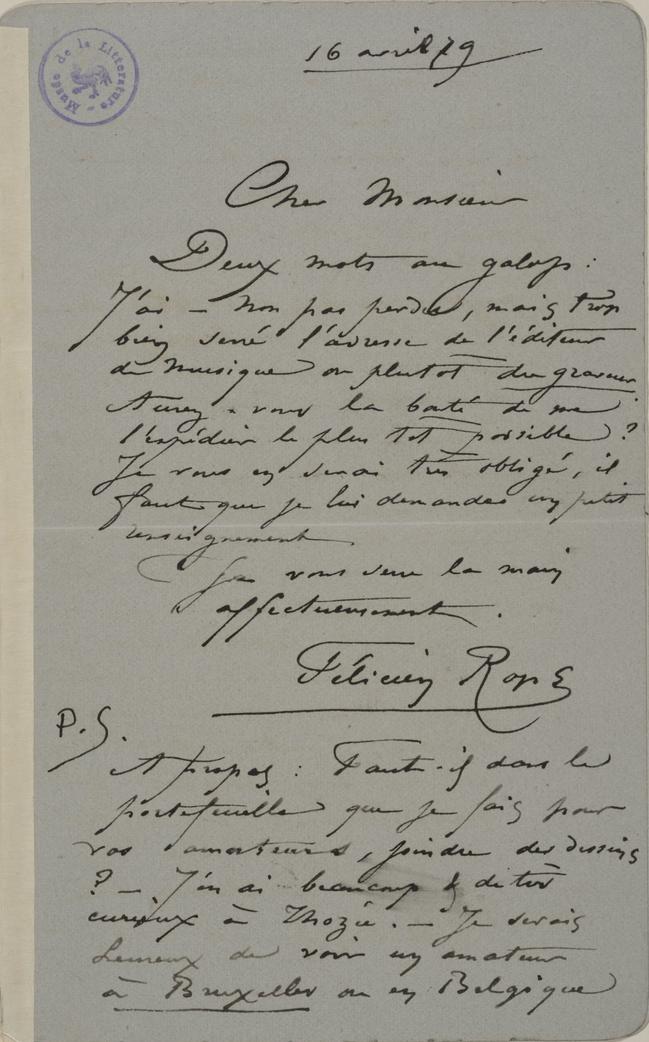 Musée de la Littérature
16 avril 79
Cher Monsieur
Deux mots au galop :
J'ai – non pas perdu, mais trop
bien serré l'adresse de l'éditeur
de musique ou plutot du graveur.
Aurez-vous la bonté de me
l'expédier le plus tot possible ?
Je vous en serai très obligé, il
faut que je lui demande un petit
renseignement
Je vous serre la main
affectueusement.
Félicien Rops
P.S.
A propos : Faut-il dans le
portefeuille que je fais pour
vos amateurs, joindre des dessins
? – J'en ai beaucoup & de très
curieux à Thozée. – Je serais
heureux de voir un amateur
à Bruxelles ou en Belgique